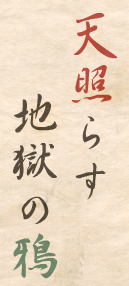 天照らす
地獄の鴉